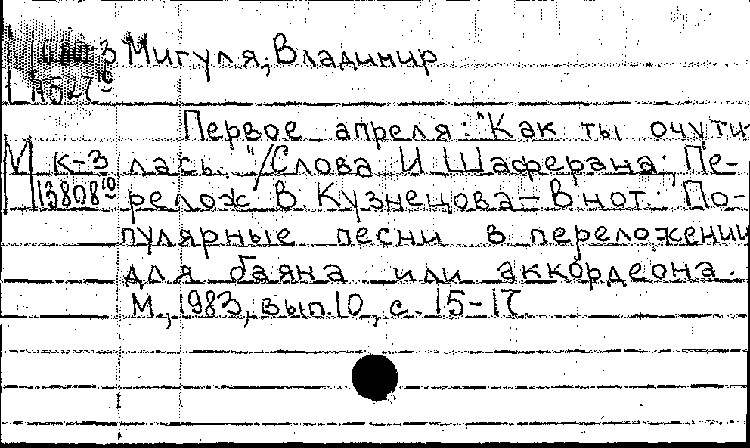 Мигуля, Владимир
Первое апреля: "Как ты очути-
М к-3 лась..."/Слова И. Шаферана; Пе-
13808 10 релож. В. Кузнецова – В нот.: По-
пулярные песни в переложении
для баяна или аккордеона.
М., 1983, вып. 10, с. 15-17